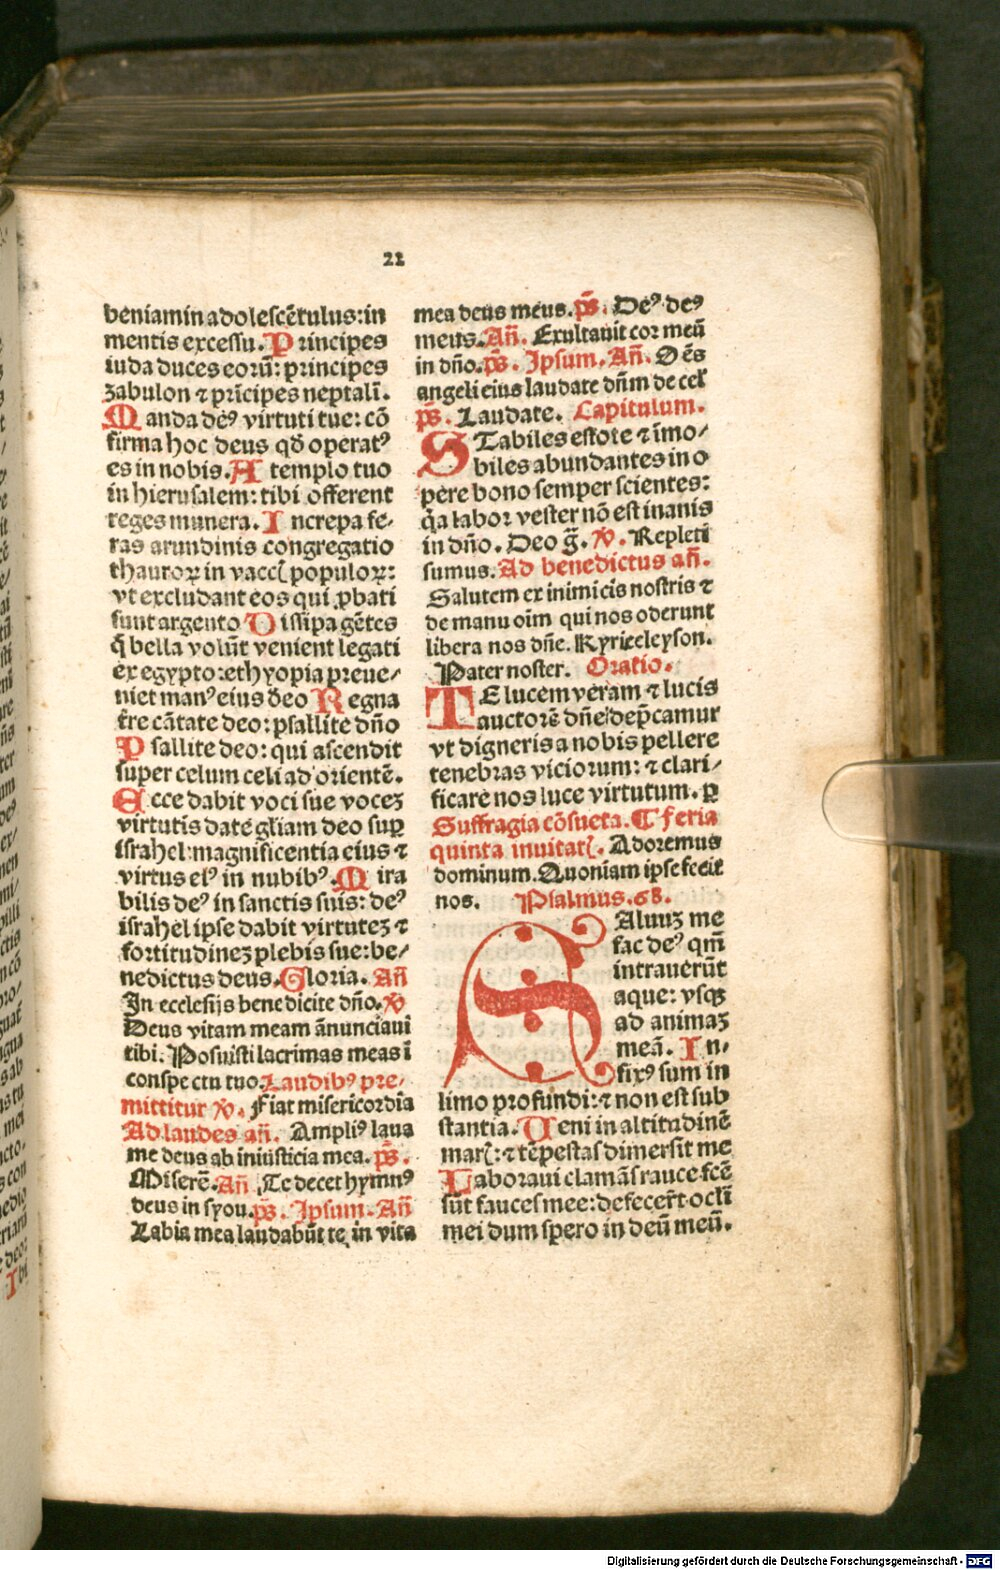 22
beniamin adolescētulus: in
mentis excessu. Principes
iuda duces eorū: principes
zabulon ⁊ prīcipes neptali.
Manda deꝰ virtuti tue: cō
firma hoc deus qđ operatꝰ
es in nobis. A templo tuo
in hierusalem: tibi offerent
reges munera. Increpa fe⸗
ras arundinis congregatio
thauroꝝ in vaccis populoꝝ:
vt excludant eos qui ꝓbati
sunt argento Dissipa gētes
q̄ bella volūt venient legati
ex egypto: ethyopia preue⸗
niet manꝰ eius deo Regna
tr̄e cātate deo: psallite dn̄o
Psallite deo: qui ascendit
super celum celi ad orientē.
Ecce dabit voci sue vocez
virtutis date gl̄iam deo suꝑ
israhel: magnificentia eius ⁊
virtus eiꝰ in nubibꝰ. Mira
bilis deꝰ in sanctis suis: deꝰ
israhel ipse dabit virtutez ⁊
fortitudinez plebis sue: be⸗
nedictus deus. Gloria. Añ
In ecclesijs benedicite dn̄o. ℣
Deus vitam meam ānunciaui
tibi. Posuisti lacrimas meas ī
conspectu tuo. Laudibꝰ pre⸗
mittitur ℣. Fiat misericordia
Ad laudes añ. Ampliꝰ laua
me deus ab iniusticia mea. p̄s.
Miserē. Añ Te decet hymnꝰ
deus in syon. p̄s. Ipsum. Añ
Labia mea laudabūt te in vita
mea deus meus. p̄s. Deꝰ deꝰ
meus. Añ. Exultauit cor meū
in dn̄o. p̄s. Ipsum. Añ. Oēs
angeli eius laudate dn̄m de cel̄
p̄s. Laudate. Capitulum.
STabiles estote ⁊ īmo⸗
biles abundantes in o
pere bono semper scientes:
q̄a labor vester nō est inanis
in dn̄o. Deo ḡ. ℣. Repleti
sumus. Ad benedictus añ.
Salutem ex inimicis nostris ⁊
de manu oīm qui nos oderunt
libera nos dn̄e. Kyrieeleyson.
Pater noster. Oratio.
TE lucem veram ⁊ lucis
auctorē dn̄e dep̄camur
vt digneris a nobis pellere
tenebras viciorum: ⁊ clari⸗
ficare nos luce virtutum. ꝑ
Suffragia cōsueta. ¶ Feria
quinta inuitať. Adoremus
dominum. Quoniam ipse fecit
nos. Psalmus. 68.
SAluuz me
fac deꝰ qm̄
intrauerūt
aque: vsqꝫ
ad animaz
meā. In⸗
fixꝰ sum in
limo profundi: ⁊ non est sub
stantia. Ueni in altitudinē
maris: ⁊ tēpestas dimersit me
Laboraui clamās rauce fcē
sūt fauces mee: defecer̄t ocl̄i
mei dum spero in deū meū.
Digitalisierung gefördert durch die Deutsche Forschungsgemeinschaft - DFG